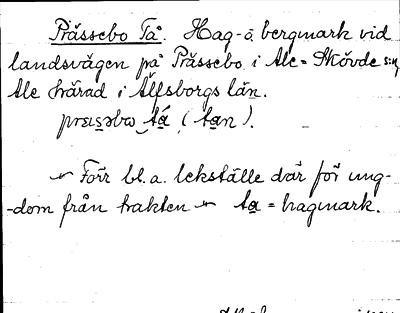 Prässebo Tå. Hag- o bergmark vid
landsvägen på Prässebo i Ale-Skövde s:n,
Ale härad i Älfsborgs län.
tá (tan).
Förr bl. a. lekställe där för ung-
-dom från trakten ta = hagmark.